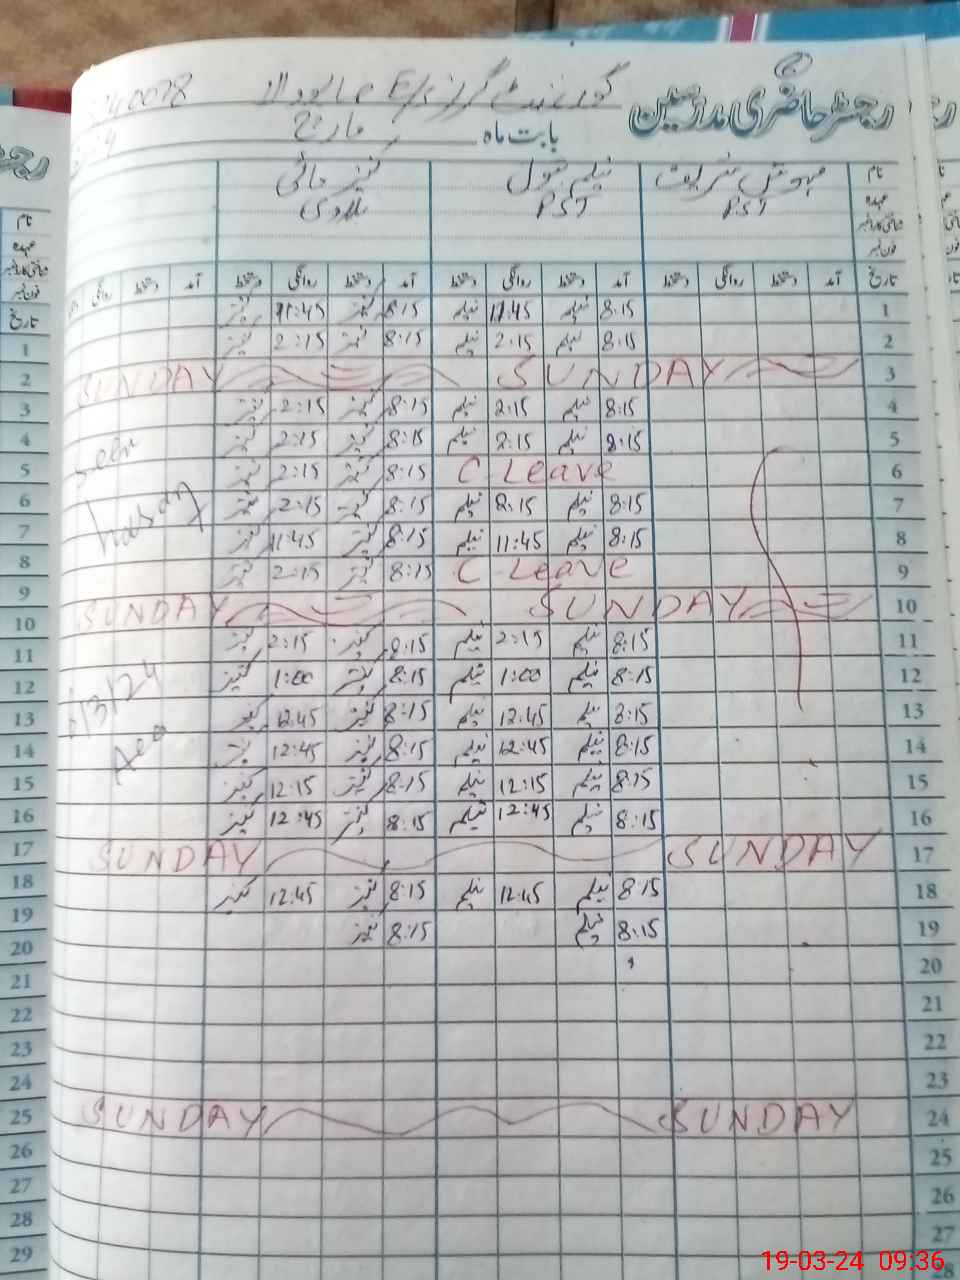 رجسٹر حاضری مدرسین گورنمنٹ گرلز
بابت ماہ مارچ
نام نیلم بتول کنیز
عہدہ PST PST
فون نمبر
تاریخ آمد دستخط روانگی دستخط آمد دستخط روانگی دستخط آمد دستخط روانگی دستخط آمد دستخط روانگی
1 8:15 نیلم 11:45 نیلم 8:15 کنیز 11:45 کنیز
2 8:15 نیلم 2:15 نیلم 8:15 کنیز 2:15 کنیز
3 SUNDAY SUNDAY
4 8:15 نیلم 2:15 نیلم 8:15 کنیز 2:15 کنیز
5 8:15 نیلم 2:15 نیلم 8:15 کنیز 2:15 کنیز
6 C Leave 8:15 کنیز 2:15 کنیز
7 8:15 نیلم 2:15 نیلم 8:15 کنیز 2:15 کنیز
8 8:15 نیلم 11:45 نیلم 8:15 کنیز 11:45 کنیز
9 C Leave 8:15 کنیز 2:15 کنیز
10 SUNDAY SUNDAY
11 8:15 نیلم 2:15 نیلم 8:15 کنیز 2:15 کنیز
12 8:15 نیلم 1:00 نیلم 8:15 کنیز 1:00 کنیز
13 8:15 نیلم 12:45 نیلم 8:15 کنیز 12:45 کنیز
14 8:15 نیلم 12:45 نیلم 8:15 کنیز 12:45 کنیز
15 8:15 نیلم 12:15 نیلم 8:15 کنیز 12:15 کنیز
16 8:15 نیلم 12:45 نیلم 8:15 کنیز 12:45 کنیز
17 SUNDAY SUNDAY
18 8:15 نیلم 12:45 نیلم 8:15 کنیز 12:45 کنیز
19 8:15 نیلم 8:15 کنیز
20
21
22
23
24 SUNDAY SUNDAY
25
26
27
28
نام
عہدہ
فون نمبر
تاریخ
1
2
3
4
5
6
7
8
9
10
11
12
13
14
15
16
17
18
19
20
21
22
23
24
25
26
27
28
29
19-03-24 09:36